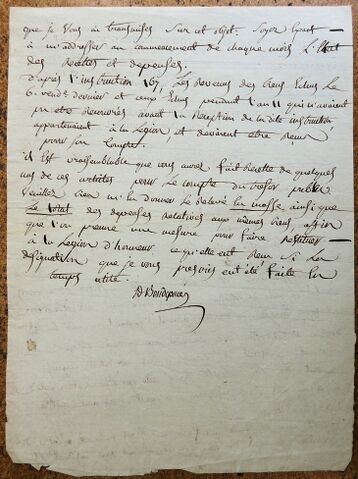 que je vous ai transmises sur cet objet. soyez exact
à m'adresser au commencement de chaque mois l'état
des Recettes et depenses.
d'après l'instruction 167, les Revenus des biens échus le
6. vend.re dernier et ceux échus pendant l'an 11 qui n'avaient
pu etre Recouvrés avant la Reception de la dite instruction
appartenaient à la Legion et devaient etre
pour son Compte.
il est vraisemblable que vous aurez fait Recette de quelques
uns de ces articles pour le compte du tresor public
veuillez bien m'en donner le Relevé en masse, ainsi que
Le total des depenses relatives aux mêmes biens, afin
que l'on prenne une mesure pour faire restituer
à la Legion d'honneur ce qu'elle eut si la
designation que je vous prescris eut été faite en
temps utile.